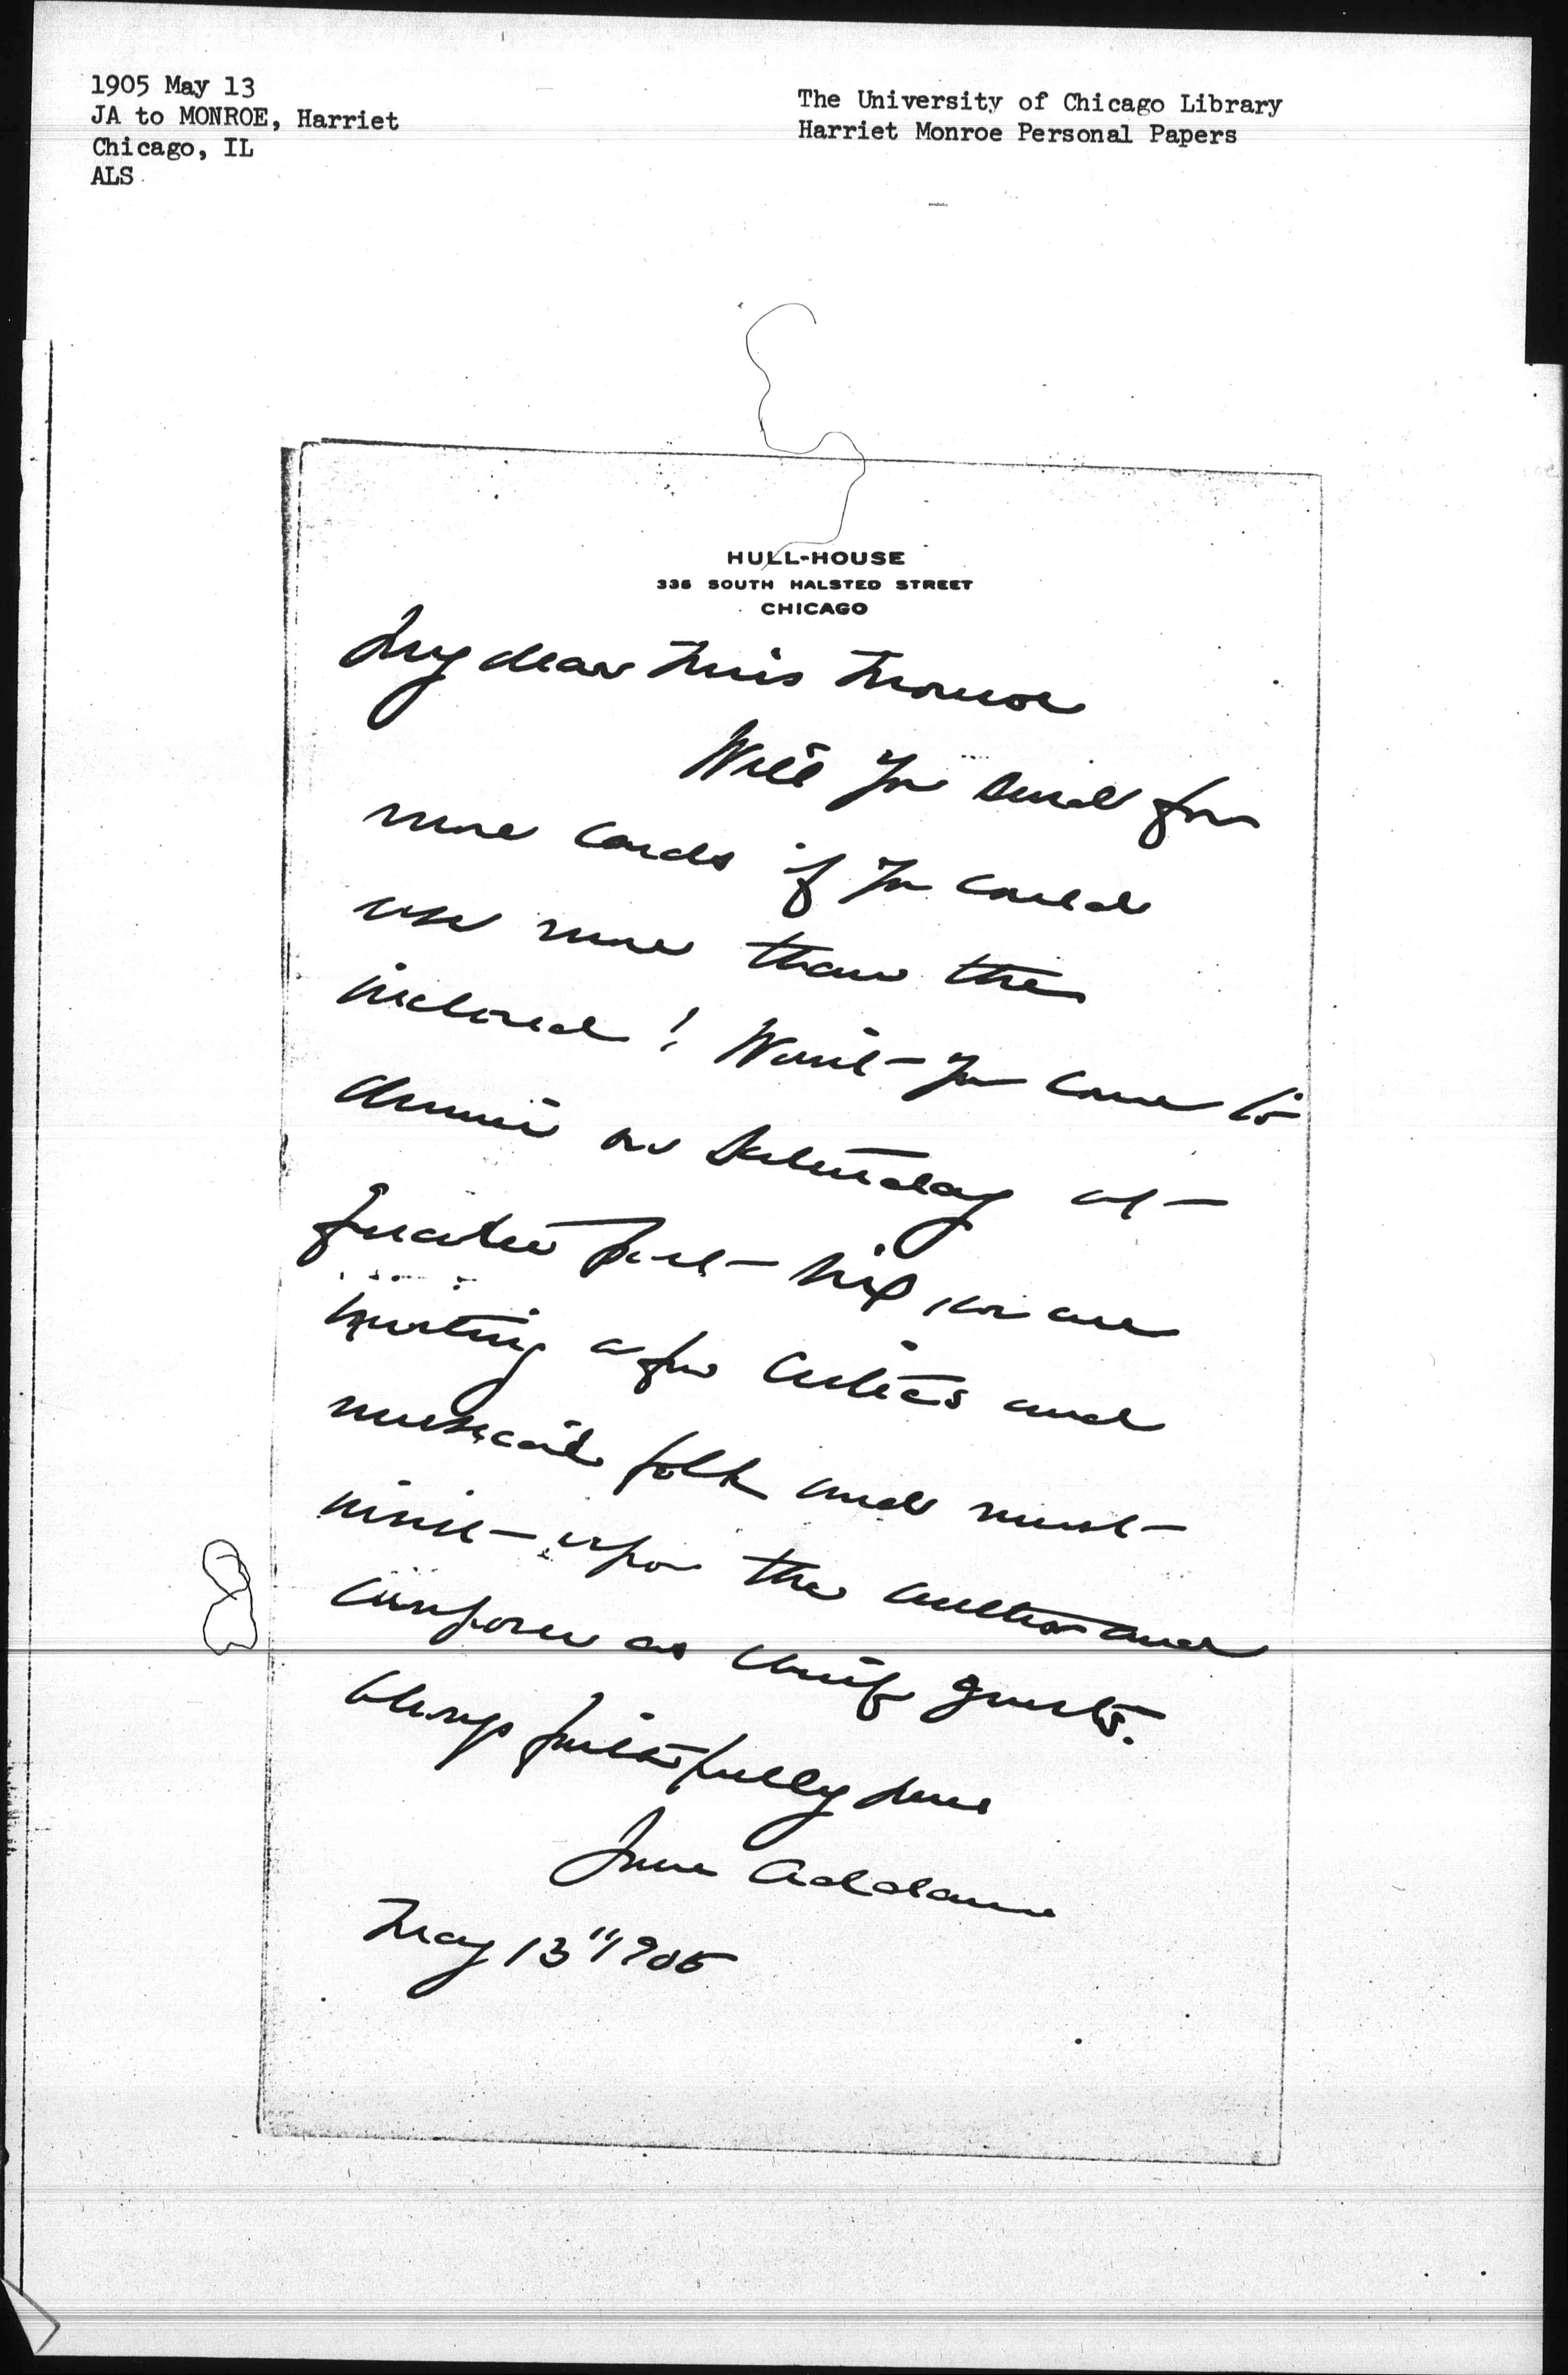 1905 May 13
JA to MONROE, Harriet
Chicago, IL
ALS
The University of Chicago Library
Harriet Monroe Personal Papers
HULL-HOUSE
335 SOUTH HALSTED STREET
CHICAGO
My dear Miss Monroe
Will you send for
more cards if you could
use more than the
inclosed! Won't you come to
dinner on Saturday at
quarter past six, we are
inviting a few critics and
musical folk and must
insist upon the author and
composer as chief guests.
Always faithfully yours
Jane Addams
May 13" 1905